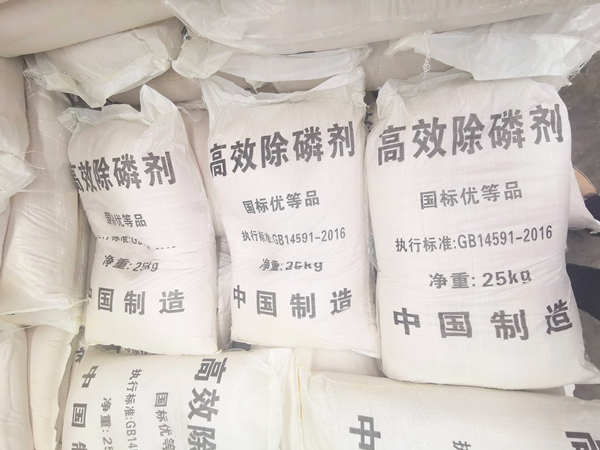 高效除磷剂
国标优等品
执行标准:GB
净重: 25kg
中国制造
高效除磷剂
国标优等品
执行标准:GB14591-2016
净重: 25kg
中国制造
高效除磷剂
国标优等品
执行标准:GB14591-2016
净重: 25kg
中国制造
高效除
国标优等品
执行标准:GB14591
净重: 25
中国制
高
执行标
中